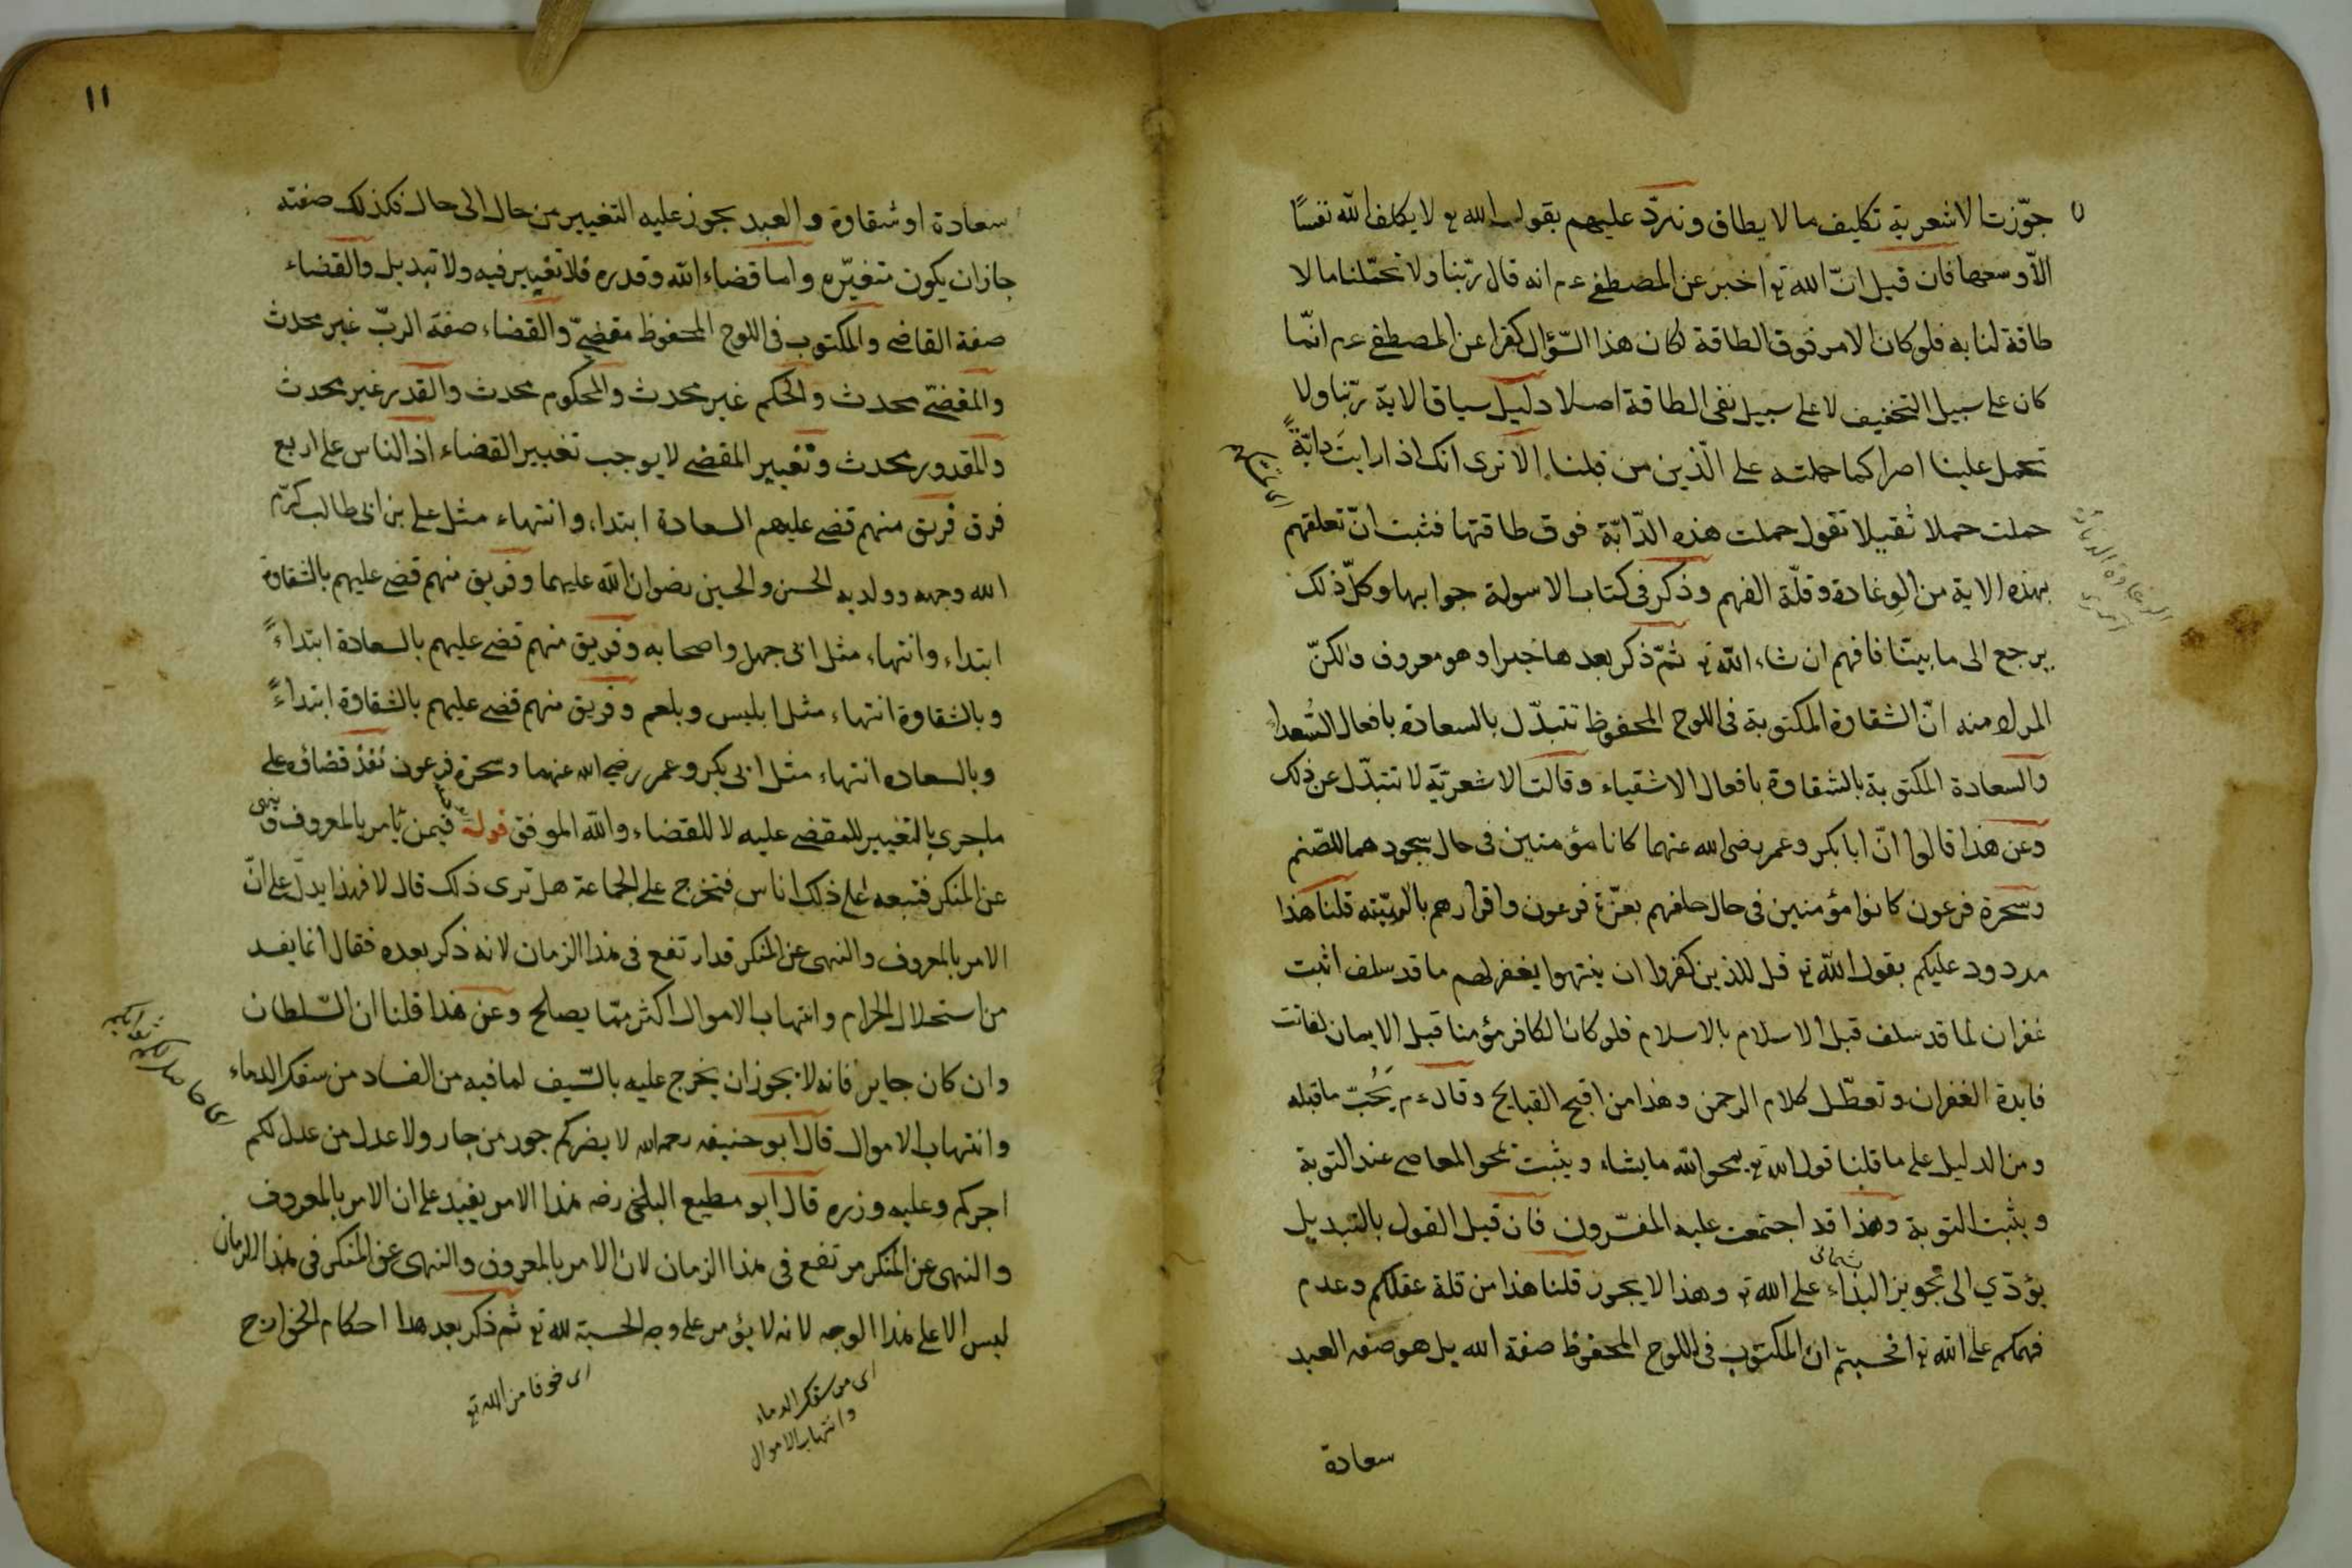 جوّزت الاشعرية تكليف ما لا يطاق ونردّ عليهم بقول الله تع لا يكلف الله نفسًا
الّا وسعها فان قيل انّ الله تع اخبر عن المصطفى عم انه قال ربّنا ولا تحمّلنا ما لا
طاقة لنا به فلو كان الامر فوق الطاقة لكان هذا السّؤال كفرا عن المصطفى عم انّما
كان على سبيل التخفيف لا على سبيل نفى الطاقة اصلا دليل سياق الاية ربّنا ولا
تحمل علينا اصرا كما حملته على الّذين من قبلنا الا ترى انك اذا رايت دابّةً
حملت حملا ثقيلا تقول حملت هذه الدّابّة فوق طاقتها فثبت انّ تعلقهم
بهذه الاية من الوغادة وقلّة الفهم وذكر فى كتاب الاسولة جوابها وكلّ ذلك
يرجع الى ما بيّنّا فافهم ان شاء الله تع ثمّ ذكر بعدها خبرا وهو معروف والكنّ
المراد منه انّ الشقاوة المكتوبة فى اللوح المحفوظ تتبدّل بالسعادة بافعال السُعداء
والسعادة المكتوبة بالشقاوة بافعال الاشقياء وقالت الاشعريّة لا تتبدّل عن ذلك
وعن هذا قالوا انّ ابا بكر وعمر رضى الله عنهما كانا مؤمنين فى حال سجودهما للصّنم
وسحرة فرعون كانوا مؤمنين فى حال حلفهم بعزّة فرعون واقرارهم بالوهيّته قلنا هذا
مردود عليكم بقول الله تع قل للذين كفروا ان ينتهوا يغفر لهم ما قد سلف اثبت
غفران لما قد سلف قبل الاسلام بالاسلام فلو كان الكافر مؤمنا قبل الايمان لفاتت
فايدة الغفران وتعطّل كلام الرحمن وهذا من اقبح القبايح وقال عم يَجُبّ ما قبله
ومن الدليل على ما قلنا قول الله تع يمحو الله ما يشاء ويثبت يمحو المعاصى عند التوبة
ويثبت التوبة وهذا قد اجتمعت عليه المفسّرون فان قيل القول بالتبديل
يؤدّي الى تجويز البداء على الله تع وهذا لا يجوز قلنا هذا من قلة عقلكم وعدم
فهمكم على الله تع افحسبتم ان المكتوب فى اللوح المحفوظ صفة الله بل هو صفة العبد
سعادة
١١
سعادة او شقاوة والعبد يجوز عليه التغيير من حال الى حال فكذلك صفته
جاز ان يكون متغيّره واما قضاء الله وقدره فلا تغيير فيه ولا تبديل والقضاء
صفة القاضى والمكتوب فى اللوح المحفوظ مقضىّ والقضاء صفة الربّ غير محدث
والمقضىّ محدث والحكم غير محدث والمحكوم محدث والقدر غير محدث
والمقدور محدث وتغيير المقضى لا يوجب تغيير القضاء اذ الناس على اربع
فرق فريق منهم قضى عليهم السعادة ابتداء وانتهاء مثل على بن ابى طالب كرّم
الله وجهه وولديه الحسن والحسين رضوان الله عليهما وفريق منهم قضى عليهم بالشقاوة
ابتداء وانتهاء مثل ابى جهل واصحابه وفريق منهم قضى عليهم بالسعادة ابتداءً
وبالشقاوة انتهاء مثل ابليس وبلعم وفريق منهم قضى عليهم بالشقاوة ابتداءً
وبالسعاده انتهاء مثل ابى بكر وعمر رضي الله عنهما وسحرة فرعون نفذ قضاؤه على
ما جرى بالتغيير للمقضى عليه لا للقضاء والله الموفق قوله فيمن يأمر بالمعروف وينهى
عن المنكر فتبعه على ذلك اناس فتخرج على الجماعة هل ترى ذلك قال لا فهذا يدلّ على انّ
الامر بالمعروف والنهى عن المنكر قد ارتفع فى هذا الزمان لانه ذكر بعده فقال انما يفسد
من استحلال الحرام وانتهاب الاموال اكثر ممّا يصلح وعن هذا قلنا ان السّلطان
وان كان جاير فانه لا يجوز ان يخرج عليه بالسّيف لما فيه من الفساد من سفك الدماء
وانتهاب الاموال قال ابو حنيفه رحمه الله لا يضركم جور من جار ولا عدل من عدل لكم
اجركم وعليه وزره قال ابو مطيع البلخى رضه هذا الامر يفيد على ان الامر بالمعروف
والنهى عن المنكر مرتفع فى هذا الزمان لان الامر بالمعروف والنهى عن المنكر فى هذا الزمان
ليس الا على هذا الوجه لانه لا يؤمر على وجه الحسبة لله تع ثم ذكر بعد هذا احكام الخوارج
اى من سفك الدماء
وانتهاب الاموال
اى خوفا من الله تع